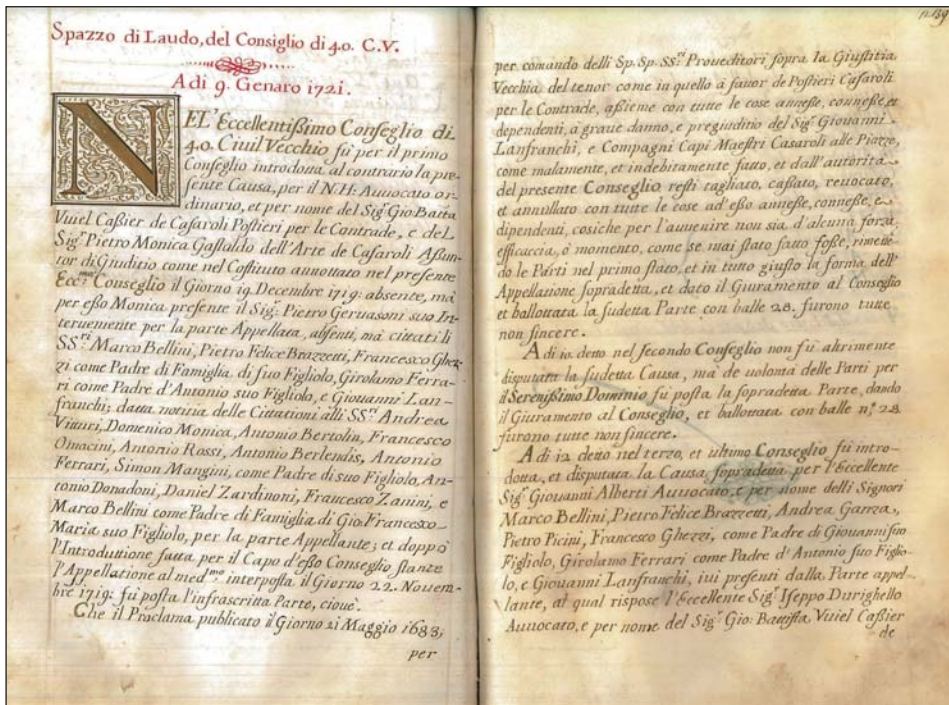 Spazzo di Laudo, del Consiglio di 40. C.V.
A di 9. Genaro 1721.
NEL'Eccellentißimo Conseglio di
40. Ciuil Vecchio fù per il primo
Conseglio introdotta al contrario la pre-
sente Causa, per il N.H: Auuocato or-
dinario, et per nome del Sigr. Gio Batta
Vuiel Caßier de Casaroli Postieri per le Contrade, e del
Sigr. Pietro Monica Gastaldo dell'Arte de Casaroli Aßun-
tor di Giuditio come nel Costituto annottato nel presente
Eccmo. Conseglio il Giorno 19 Decembre 1719: absente, mà
per eßo Monica presente il Sigr: Pietro Geruasoni suo In-
teruemente per la parte Appellata, absenti, mà cittati li
SS.ri Marco Bellini, Pietro Felice Brazzetti, Francesco Ghez-
zi come Padre di Famiglia di suo Figliolo, Girolamo Ferra-
ri come Padre d'Antonio suo Figliolo, e Giouanni Lan-
franchi; datta notitia delle Cittationi alli SS.ri Andrea
Vitturi, Domenico Monica, Antonio Bertolin, Francesco
Omacini, Antonio Rossi, Antonio Berlendis, Antonio
Ferrari, Simon Mangini, come Padre di suo Figliolo, An-
tonio Donadoni, Daniel Zardinoni, Francesco Zanini, e
Marco Bellini come Padre di Famiglia di Gio: Francesco
Maria suo Figliolo, per la parte Appellante; et doppò
l'Introduttione fatta per il Capo d'eßo Conseglio stante
l'Appellatione al medmo. interposta il Giorno 22. Nouem-
bre 1719: fù posta l'infrascritta Parte, cioue.
Che il Proclama publicato il Giorno 21 Maggio 1683;
per
per comando delli Sp. Sp. SS.ri Proueditori sopra la Giustitia
Vecchia del tenor come in quello à fauor de Postieri Casaroli
per le Contrade, aßieme con tutte le cose anneße, conneße, et
dependenti, à graue danno, e pregiuditio del Sigr. Giouanni
Lanfranchi, e Compagni Capi Maestri Casaroli alle Piazze,
come malamente, et indebitamente fatto, et dall'autorità
del presente Conseglio resti tagliato, caßato, reuocato,
et annullato con tutte le cose ad'eßo anneße, conneße, e
dipendenti, cosiche per l'auuenire non sia d'alcuna forza,
efficaccia, ò momento, come se mai stato fatto foße, rimette-
do le Parti nel primo stato, et in tutto giusto la forma dell'
Appellatione sopradetta, et dato il Giuramento al Conseglio
et ballottata la sudetta Parte con balle 28. furono tutte
non sincere.
A di 10. detto nel secondo Conseglio non fù altrimente
disputata la sudetta Causa, mà de uolontà delle Parti per
il Serenißimo Dominio fù posta la sopradetta Parte, dando
il Giuramento al Conseglio, et ballottata con balle n.º 28
furono tutte non sincere.
A di 12 detto nel terzo, et ultimo Conseglio fù intro-
dotta, et disputata la Causa sopradetta per l'Eccellente
Sigr. Giouanni Alberti Auuocato, e per nome delli Signori
Marco Bellini, Pietro Felice Brazzetti, Andrea Garza,
Pietro Picini, Francesco Ghezzi, come Padre di Giouanni suo
Figliolo, Girolamo Ferrari come Padre d'Antonio suo Figlio-
lo, e Giouanni Lanfranchi, iui presenti dalla Parte appel-
lante, al qual rispose l'Eccellente Sigr. Iseppo Durighello
Auuocato, e per nome del Sigr. Gio: Battista Vuiel Caßier
de